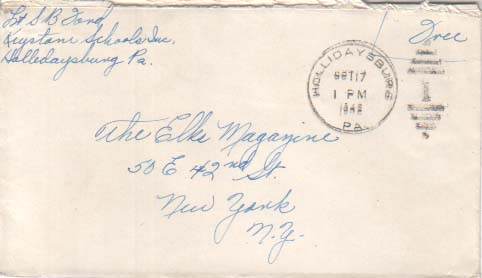 Lt S B Ford
Keystone Schools Inc.
Holledaysburg Pa.
Free
HOLLIDAYSBURG
OCT 17
1 PM
PA.
The Elks Magazine
50 E 42nd St.
New York
N.Y.